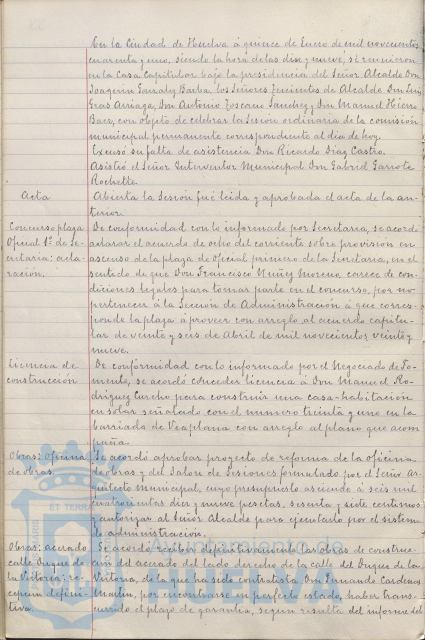 En la Ciudad de Huelva á quince de Enero de mil novecientos
cuarenta y uno, siendo la hora de las diez y nueve, se reunieron
en la Casa Capitular bajo la presidencia del Señor Alcalde Don
Joaquin Barba, los Señores Tenientes de Alcalde Don Luis
Gras Arriaga, Don Antonio Toscano Sanchez y Don Manuel Hierro
con objeto de celebrar la Sesión ordinaria de la comisión
municipal permanente correspondiente al dia de hoy.
Excusó su falta de asistencia Don Ricardo Diaz Castro.
Asistió el Señor Interventor Municipal Don Gabriel Garrote
Rochette.
Acta
Abierta la Sesión fué leida y aprobada el acta de la an-
terior.
Concurso plaza
Oficial 1º de Se-
cretaria: acla-
ración.
De conformidad con lo informado por Secretaria, se acordó
aclarar el acuerdo de ocho del corriente sobre provisión en
ascenso de la plaza de oficial primero de la Secretaria, en el
sentido de que Don Francisco Nuñez Moreno, carece de con-
diciones legales para tomar parte en el concurso, por no
pertenecer á la Sección de Administración á que corres-
ponde la plaza á proveer con arreglo al acuerdo capitu-
lar de veinte y seis de Abril de mil novecientos veinte y
nueve.
Licencia de
construcción
De conformidad con lo informado por el Negociado de Fo-
mento, se acordó conceder licencia á Don Manuel Ro-
driguez para construir una casa-habitación
en solar señalado con el numero treinta y uno en la
barriada de con arreglo al plano que acom-
paña.
Obras: Oficina
de obras.
Se acordó aprobar proyecto de reforma de la oficina
de obras y del Salon de Sesiones formulado por el Señor Ar-
quitecto Municipal, cuyo presupuesto asciende á seis mil
cuatrocientas diez y nueve pesetas, sesenta y siete centimos
y autorizar al Señor Alcalde para ejecutarlo por el sistema
de administración.
Obras: acerado
calle Duque de
la Victoria: re-
cepción defini-
tiva.
Se acordó recibir definitivamente las obras de construc-
ción del acerado del lado derecho de la calle del Duque de la
Victoria, de la que ha sido contratista Don Fernando Cardenas
Martin, por encontrarse en perfecto estado, haber trans-
currido el plazo de garantia, segun resulta del informe del
Ayuntamiento de